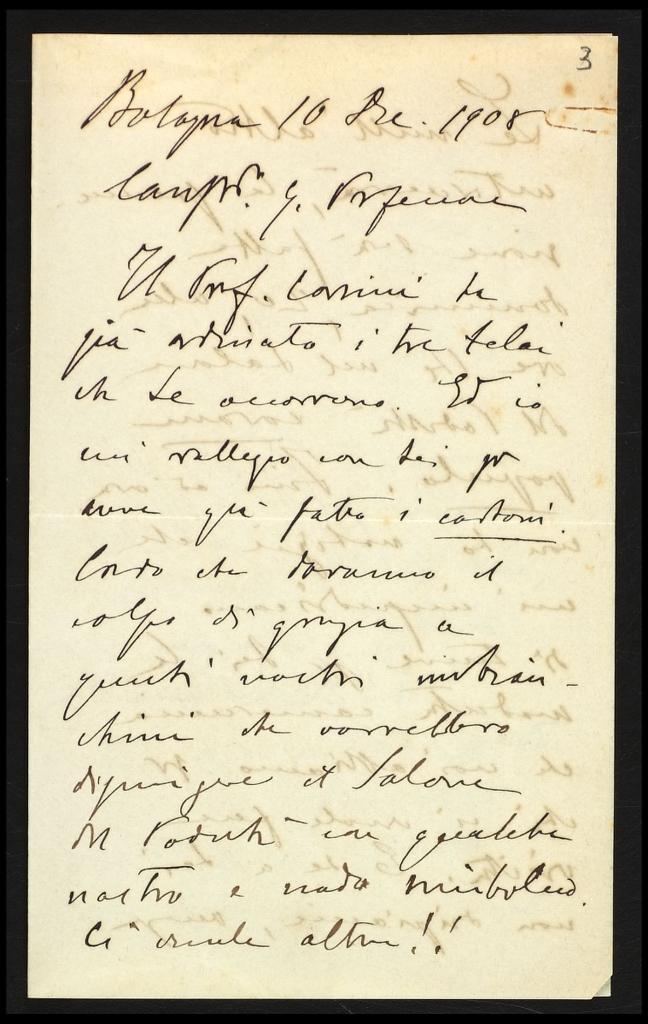 3
Bologna 10 Dic. 1908
Il Prof. Corsini ha
già ordinato i tre telai
che Le occorrono. Ed io
mi rallegro con Lei per
avere già fatto i cartoni.
Credo che daranno il
colpo di grazia a
questi nostri imbian-
chini che vorrebbero
dipingere il Salone
del Podestà con qualche
nastro e nodo
Ci vuole altro!!